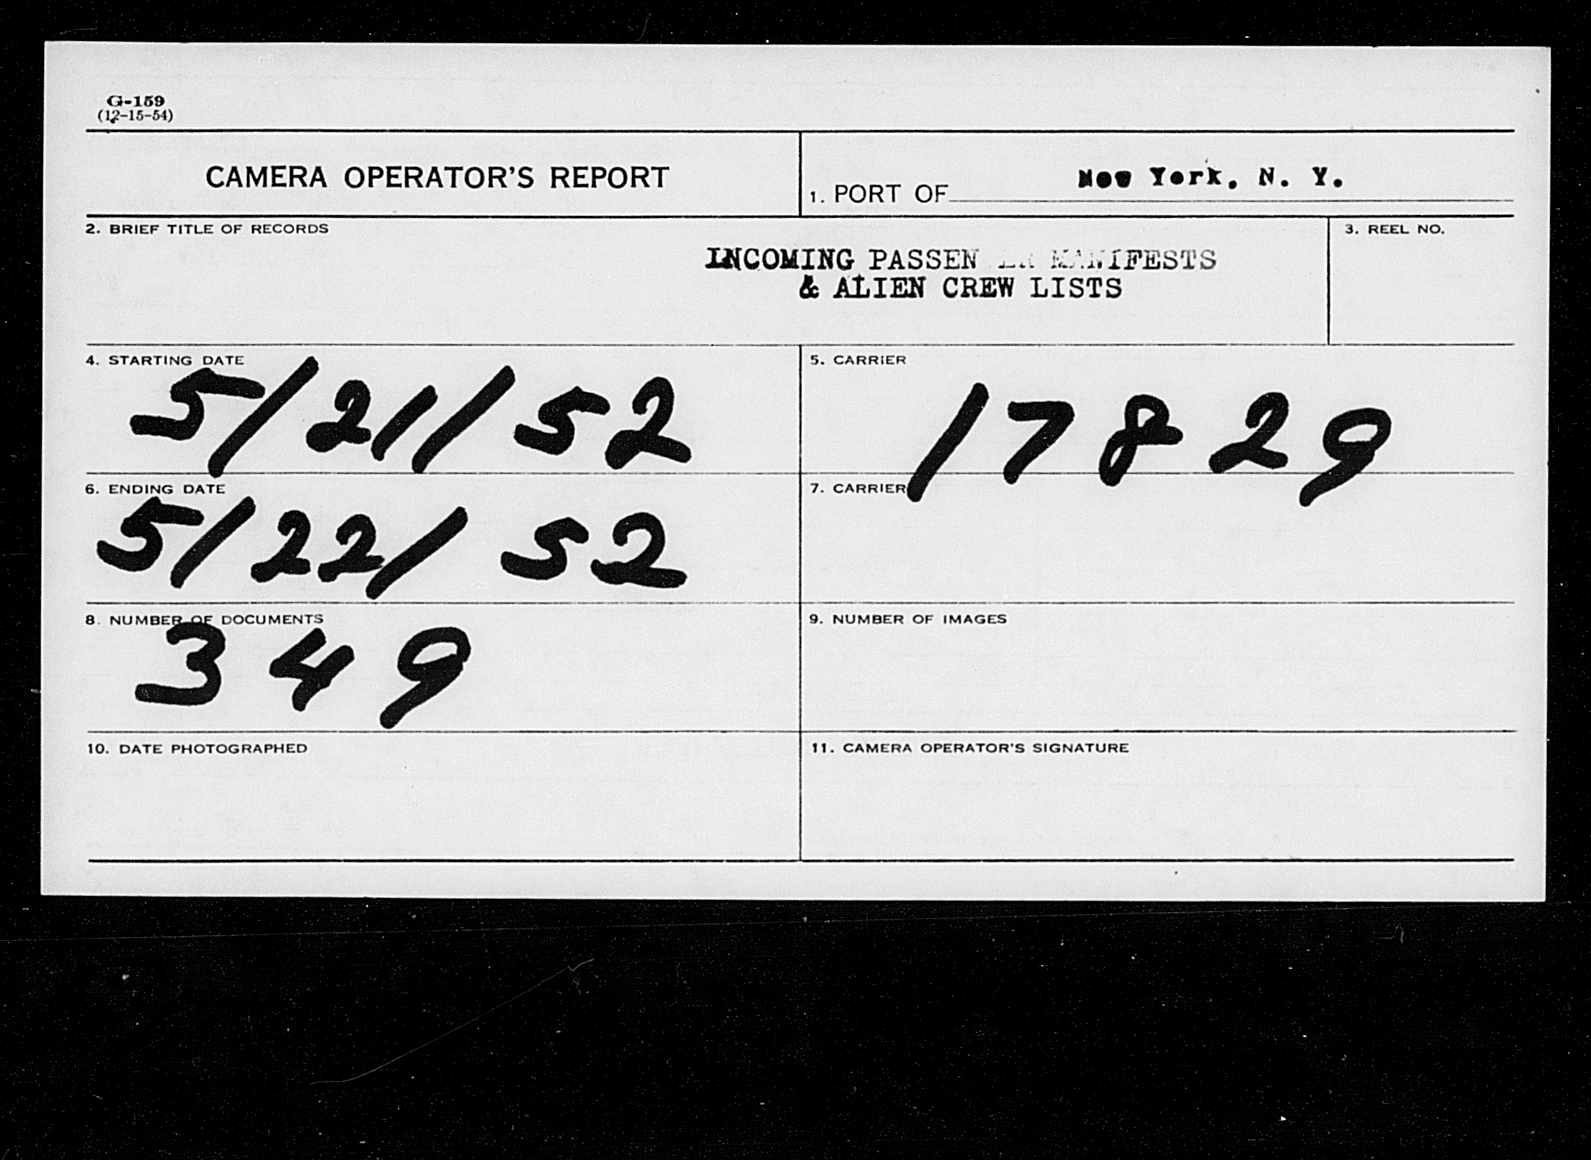 G-159
(12-15-54)
CAMERA OPERATOR'S REPORT
1. PORT OF New York, N. Y.
2. BRIEF TITLE OF RECORDS
INCOMING PASSEN ER MANIFESTS
& ALIEN CREW LISTS
3. REEL NO.
4. STARTING DATE
5/21/52
5. CARRIER
17829
6. ENDING DATE
5/22/52
7. CARRIER
8. NUMBER OF DOCUMENTS
349
9. NUMBER OF IMAGES
10. DATE PHOTOGRAPHED
11. CAMERA OPERATOR'S SIGNATURE